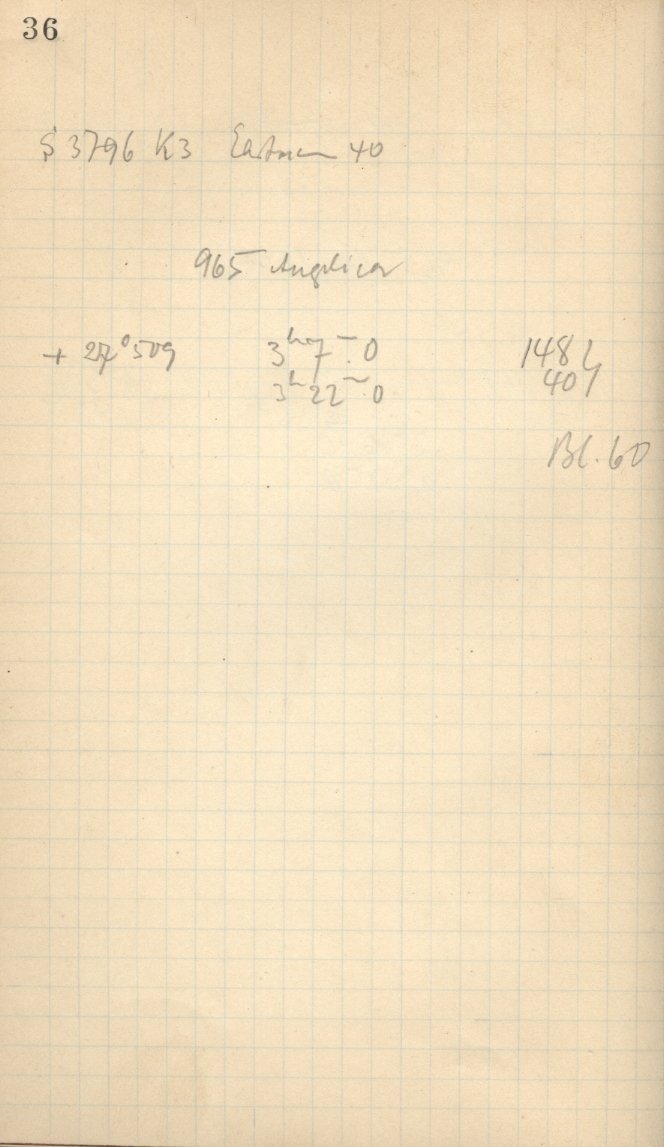 36
S 3796 K3 Eastman 40
965 Angelica
+ 27° 509 3h 7m.0 148
3h 22m.0 40
Bl. 60